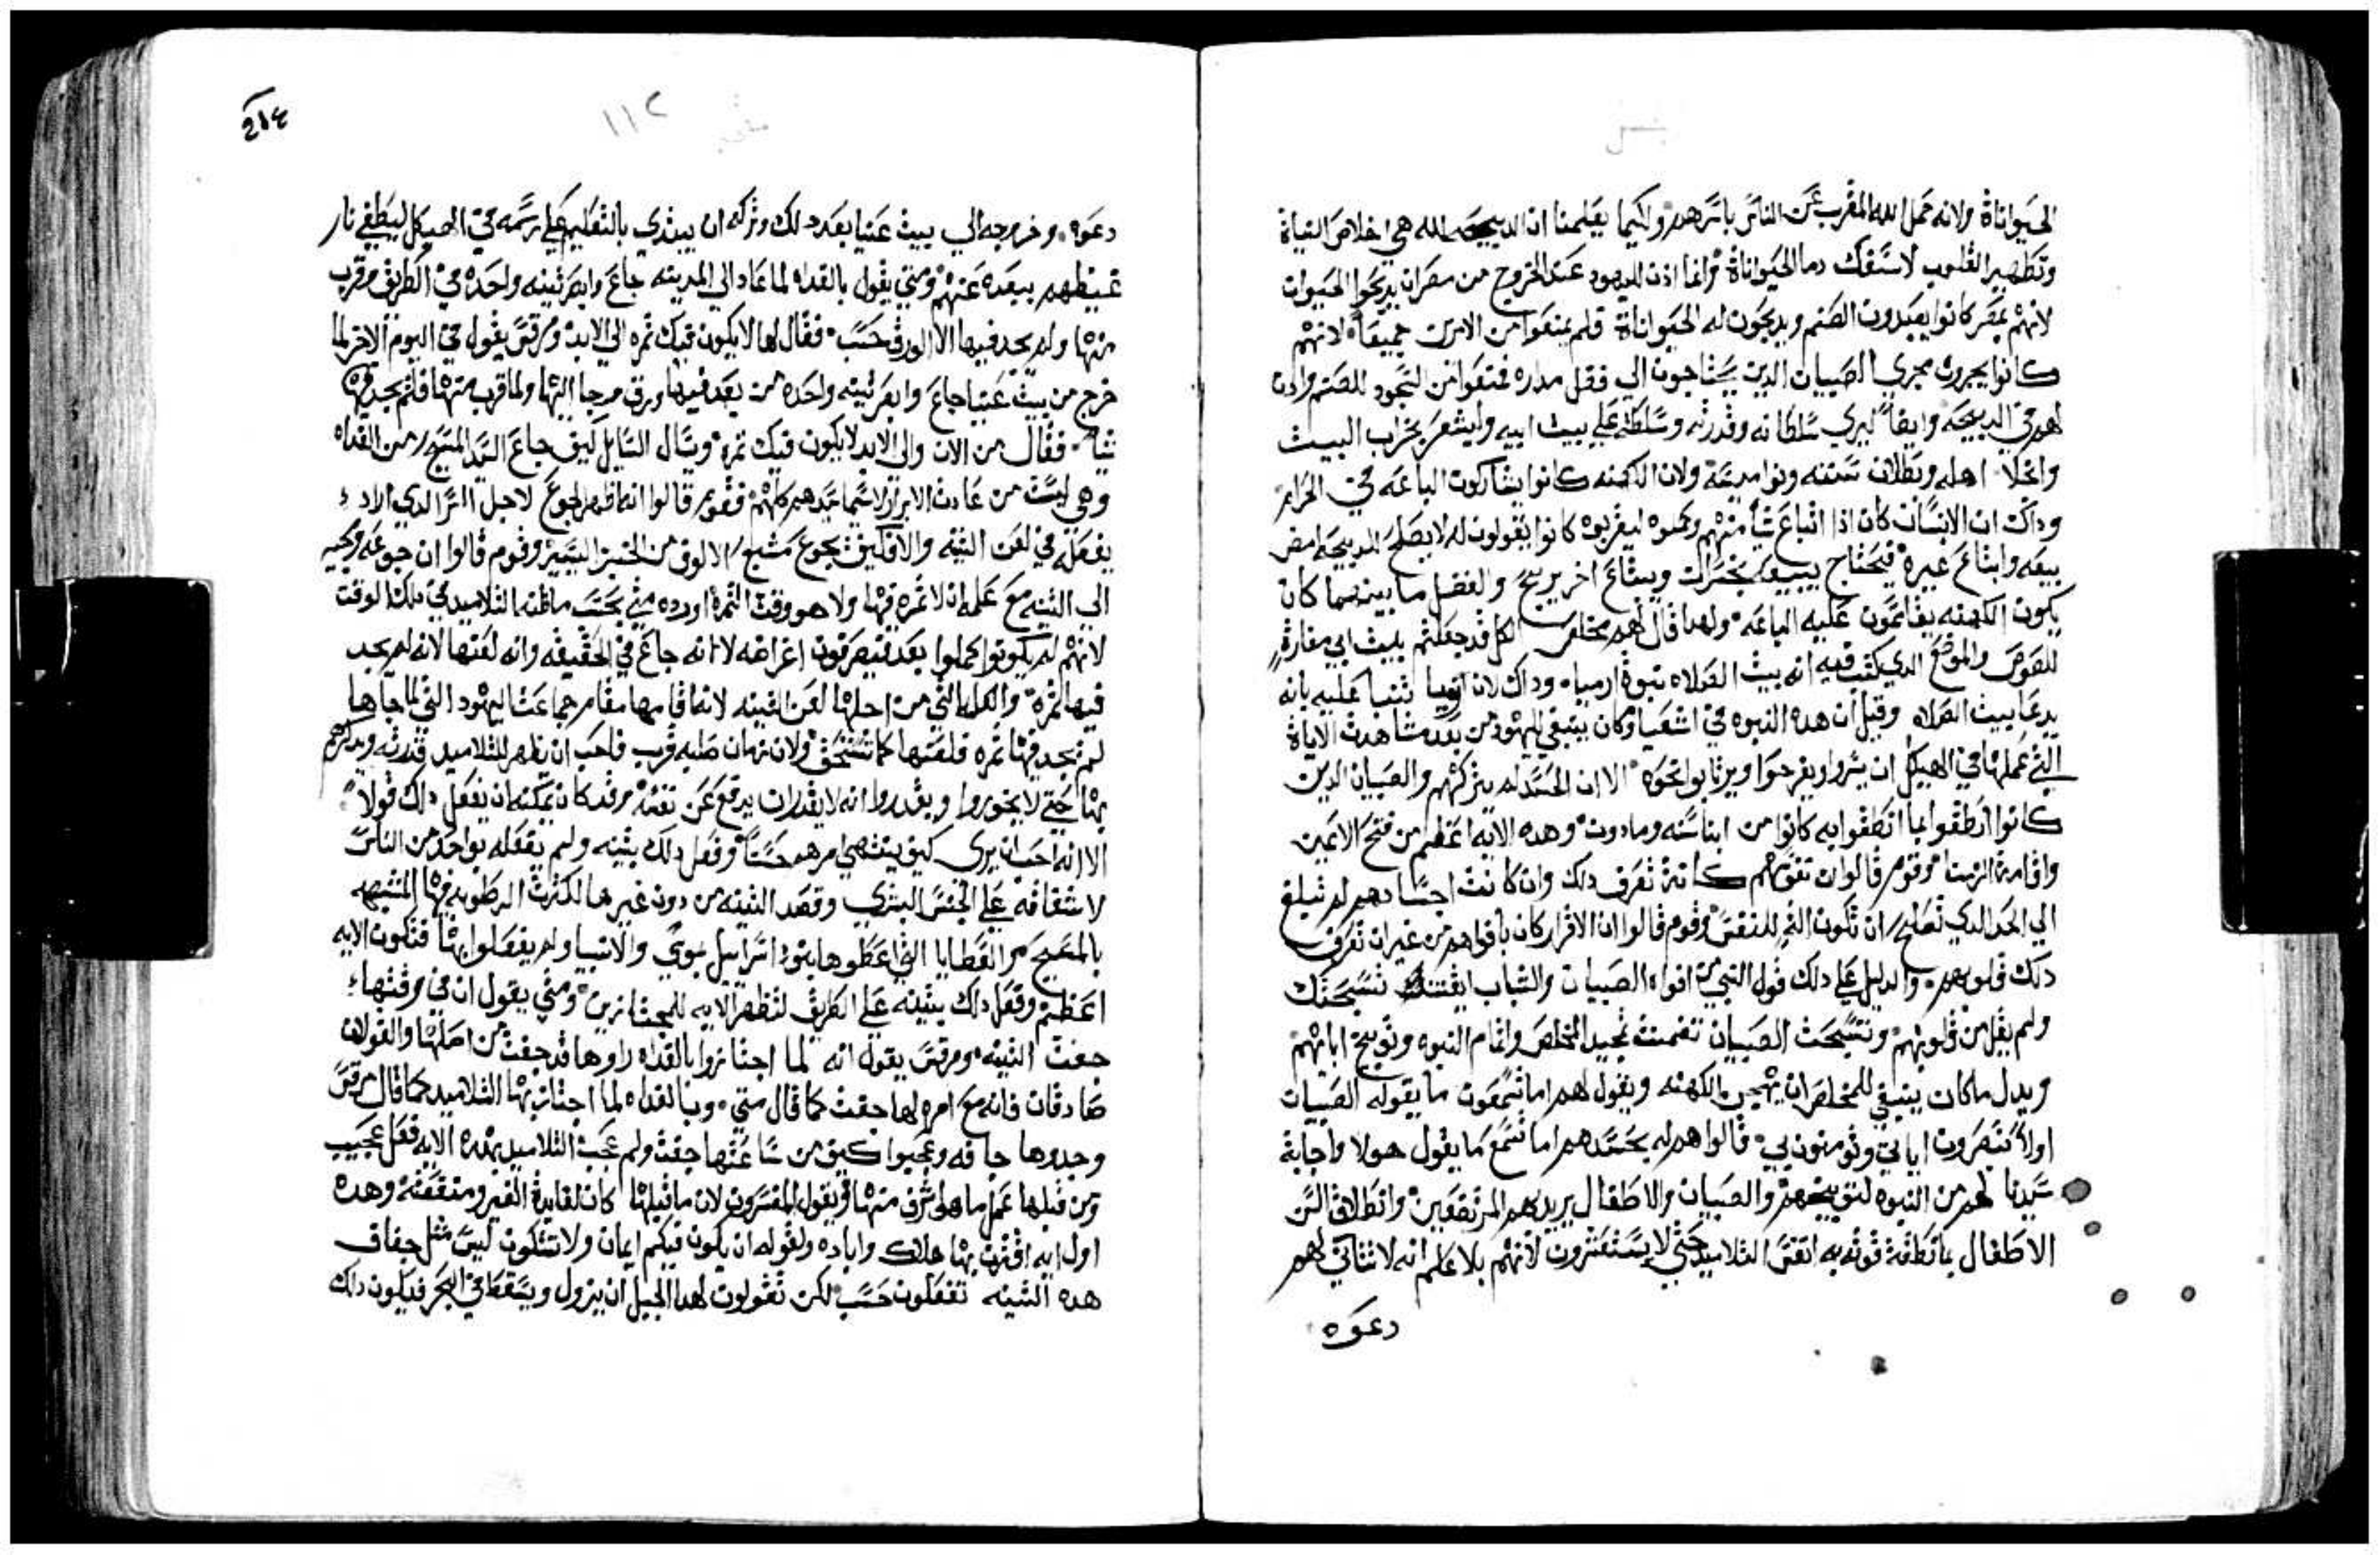 الحيواناة ولانه حمل الله المقرب عن الناس باسرهم وكيما يعلمنا ان الدبيحه لله هي اخلاص النياة
وتطهير القلوب لا سفك دما الحيواناة وانما اذن لليهود عند الخروج من مصر ان يدبحوا الحيوان
لانهم بمصر كانوا يعبدون الصنم ويدبحون له الحيواناة فلم يمنعوا من الامرين جميعا لانهم
كانوا يجرون مجرى الصبيان الدين يحتاجون الي فضل مداره فمنعوا من السجود للصنم وادن
لهم في الدبيحه وايضا ليري سلطانه وقدرته وسلطته علي بيت ابيه وليشعر بخراب البيت
واخلا اهله وبطلان سننه ونواميسه ولان الكهنه كانوا يشاركون الباعه في الحرام
وداك ان الانسان كان اذا ابتاع شيا منهم وحمله ليقربه كانوا يقولون له لا يصلح للدبيحه امض
بيعه وابتاع غيره فيحتاج يبيعه بخسران ويبتاع اخر بربح والفضل ما بينهما كان
يكون الكهنه يقاسمون عليه الباعه ولهدا قال لهم مخلص الكل قد جعلتم بيت ابي مغارة
للصوص والموضع الدي كتب فيه انه بيت الصلاه نبوة ارميا وداك لان تنبا عليه بانه
يدعا بيت الصلاه وقيل ان هده النبوه في اشعيا وكان ينبغي لليهود من بعد مشاهدة الاياة
التي عملها في الهيكل ان يسروا ويفرحوا ويرتابوا نحوه الا ان الحسد لم يتركهم والصبيان الدين
كانوا انطقوا بما انطقوا به كانوا من ابنا سنه وما دون وهده الايه اعظم من فتح الاعمين
واقامة الموتا وقوم قالوا ان نفوسهم كانت تعرف دلك وان كانت اجسادهم لم تبلغ
الي الحد الدي تصلح ان تكون اله للنفس وقوم قالوا ان الاقرار كان بافواههم من غير ان تعرف
دلك قلوبهم والدليل علي دلك قول النبي من افواه الصبيان والشباب اتقنت تسبحتك
ولم يقل من قلوبهم وتسبحت الصبيان تضمنت تمجيد المخلص واتمام النبوه وتوبيخ ابايهم
وبدل ما كان ينبغي للمخلص ان يهجين الكهنه ويقول لهم اما تسمعون ما يقوله الصبيان
اولا تنصرون اياتي وتومنون بي قالوا هم له بحسدهم اما تسمع ما يقول هولا واجابة
سيدنا لهم من النبوه لتوبيخهم والصبيان والاطفال يريد بهم المرتضعين وانطلاق السن
الاطفال بما نطقت قوته به اتقن التلاميد حتي لا يستشعرون لانهم بلا علم انه لا تتاتي لهم
دعوه
٢١٤
١١٢
دعوه وخروجه الي بيت عنيا بعد دلك وتركه ان يبتدي بالتعليم علي رسمه في الهيكل ليطفي نار
غيظهم ببعده عنهم ومتي يقول بالغداه لما عاد الي المدينه جاع وابصر تينه واحده في الطريق وقرب
منها ولم يجد فيها الا الورق حسب فقال لها لا يكون فيك تمره الي الابد ومرقس يقول في اليوم الاخر لما
خرج من بيت عنيا جاع وابصر تينه واحده من بعد فيها ورق فرجا اليها ولما قرب منها فلم يجد فيها
شيا فقال من الان والي الابد لا يكون فيك تمرة وسال السايل كيف جاع السيد المسيح من الغداه
وهي ليست من عادت الابرار لا سيما سيدهم كلهم فقوم قالوا انه اظهر الجوع لاجل السر الدي اراد
يفعله في لعن التينه والا فكيف يجوع مشبع الالوف من الخبز اليسير وقوم قالوا ان جوعه ومجيه
الي التينه مع علمه ان لا تمره فيها ولا هو وقت التمرة اورده متي بحسب ما ظنه التلاميد في دلك الوقت
لانهم لم يكونوا كملوا بعد فيعرفون اغراضه لا انه جاع في الحقيقه وانه لعنها لانه لم يجد
فيها تمرة والعله التي من اجلها لعن التينه لانه اقامها مقام جماعت اليهود التي لما جاها
لم يجد فيها تمره فلعنها كما تستحق ولان زمان صلبه قرب فاحب ان يظهر للتلاميد قدرته ويدكرهم
بها حتي لا يخوروا ويقدروا انه لا يقدر ان يدفع عن نفسه وقد كان يمكنه ان يفعل دلك قولا
الا انه احب ان يري كيف ينتهي امرهم حسا وفعل دلك بتينه ولم يفعله بواحد من الناس
لاشفاقه علي الجنس البشري وقصد التينه من دون غيرها لكثرت الرطوبه فيها المشبهه
بالمسيح والعطايا التي اعطوها بنو اسراييل بموسي والانبيا ولم يفعلوا بها فتكون الايه
اعظم وفعل دلك بتينه علي الطريق لتظهر الايه للمجتازين ومتي يقول ان في وقتها
جفت التينه ومرقس يقول انه لما اجتازوا بالغداه راوها قد جفت من اصلها والقولان
صادقان فانه مع امره لها جفت كما قال متي وبالغداه لما اجتاز بها التلاميد كما قال مرقس
وجدوها جافه وعجبوا كيف من ساعتها جفت ولم عجب التلاميد بهده الايه فعل عجيب
ومن قبلها عمل ما هو اشرف منها فيقول المفسرون لان ما قبلها كان لفايدة الغير ومنفعته وهده
اول ايه اقترن بها هلاك واباده ولقوله ان يكون فيكم ايمان ولا تشكون ليس مثل جفاف
هده التينه تفعلون حسب لكن تقولون لهدا الجبل ان يزول ويسقط في البحر فيكون داك